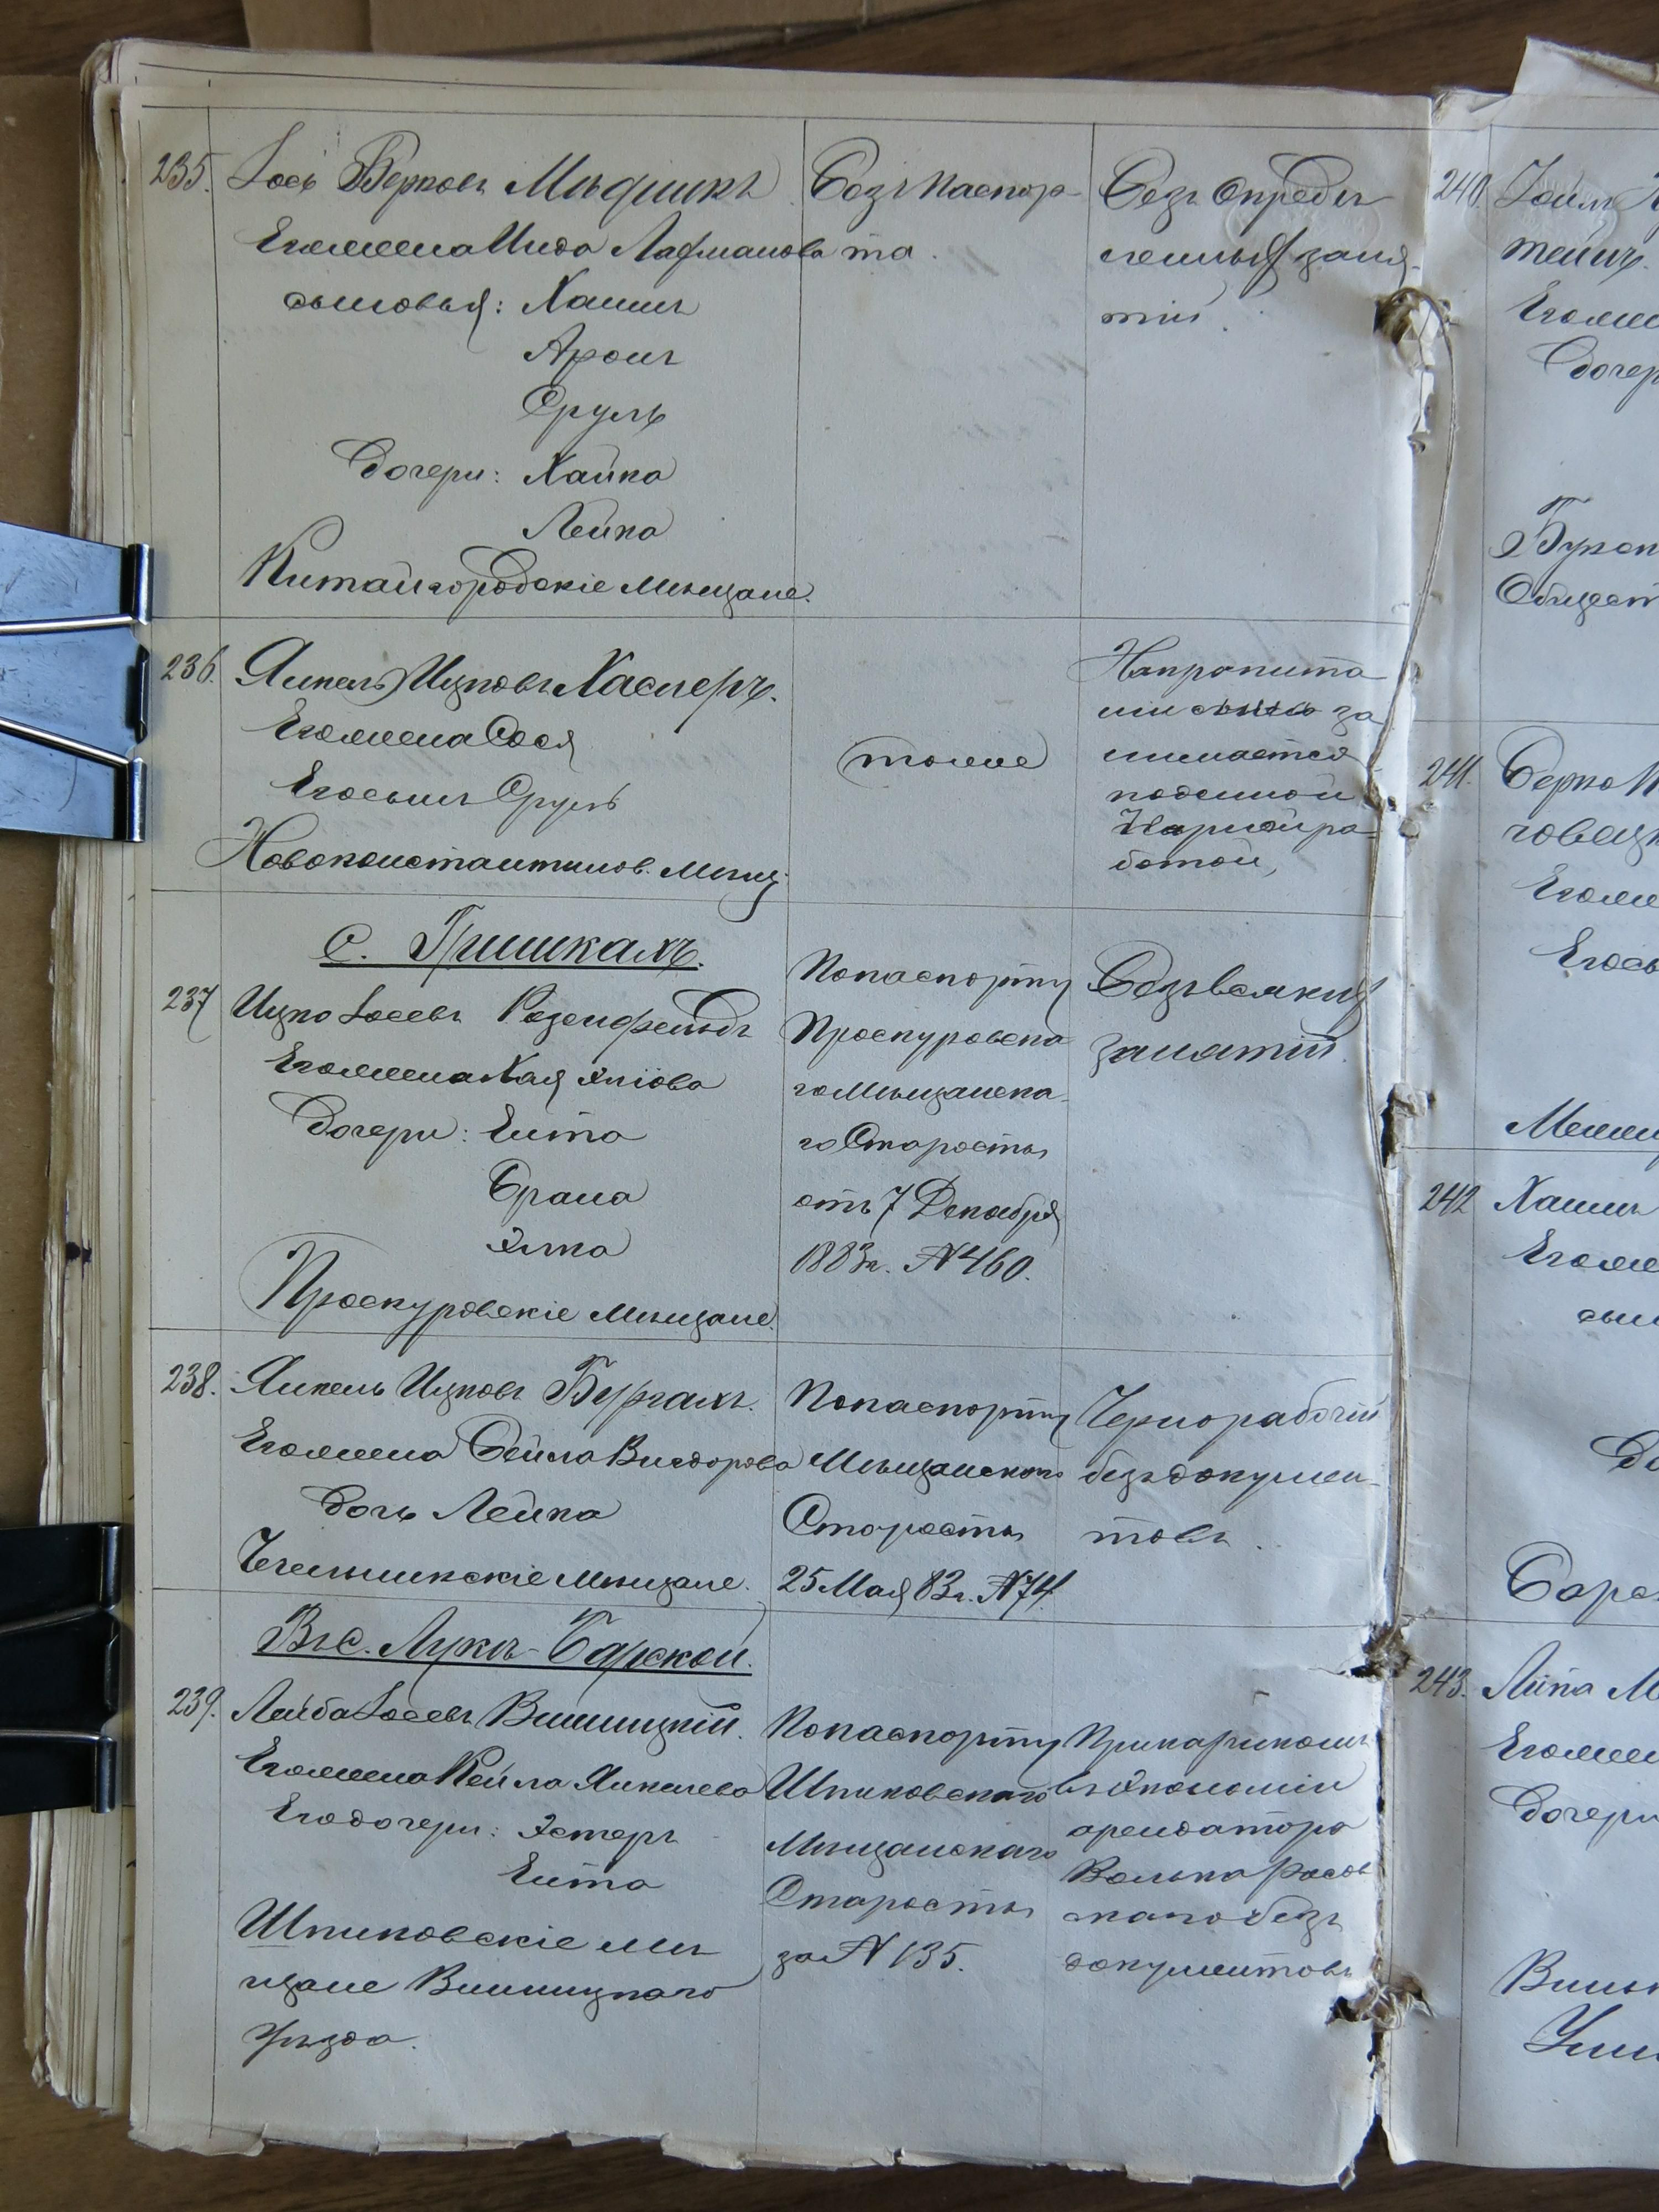 235. Іось Берковъ Мѣдникъ
Его жена Инда Лафманова
сыновья: Хаимъ
Аронъ
Сруль
дочери: Хайка
Лейка
Китайгородскіе мѣщане.
Безъ паспор-
та.
Безъ опредѣ
ленныхъ заня-
тій.
236. Янкель Ицковъ Хаслеръ.
Его жена Сося
Его сынъ Сруль
Новоконстантинов. мѣщ.
тоже
На пропита
ніи за
нимается
поденной
Черной ра-
ботой,
С. Гришкахъ.
237 Ицко Іосевъ Розенфельдъ
Его жена Хая
Дочери: Ента
Брана
Элка
Проскуровскіе мѣщане.
По паспорту
Проскуровска
го Мѣщанска-
го Старосты
отъ 7 Декабря
1883г. №460.
Безъ всякихъ
занятій.
238. Янкель Ицковъ
Его жена Бейла
дочь Лейка
Чечельникскіе мѣщане.
По паспорту
Мѣщанскаго
Старосты
25 Мая 83г. №74.
Чернорабочій
безъ докумен-
товъ.
Въ с. Лукѣ-Барской.
239. Лейба Іосевъ Винницкій.
Его жена Кейла Янкелева
Его дочери: Эстеръ
Ента
Шпиковскіе мѣ
щане Винницкаго
уѣзда.
По паспорту
Шпиковскаго
Мѣщанскаго
Старосты
за № 135.
Прикащикомъ
въ Экономіи
арендатора
скаго безъ
документовъ
240.
тейнъ.
Его жен
дочер
Общест
241. Берко
Его жен
Его сы
242 Хаимъ
Его жен
сын
До
243. Лійба М
Его жен
Дочери